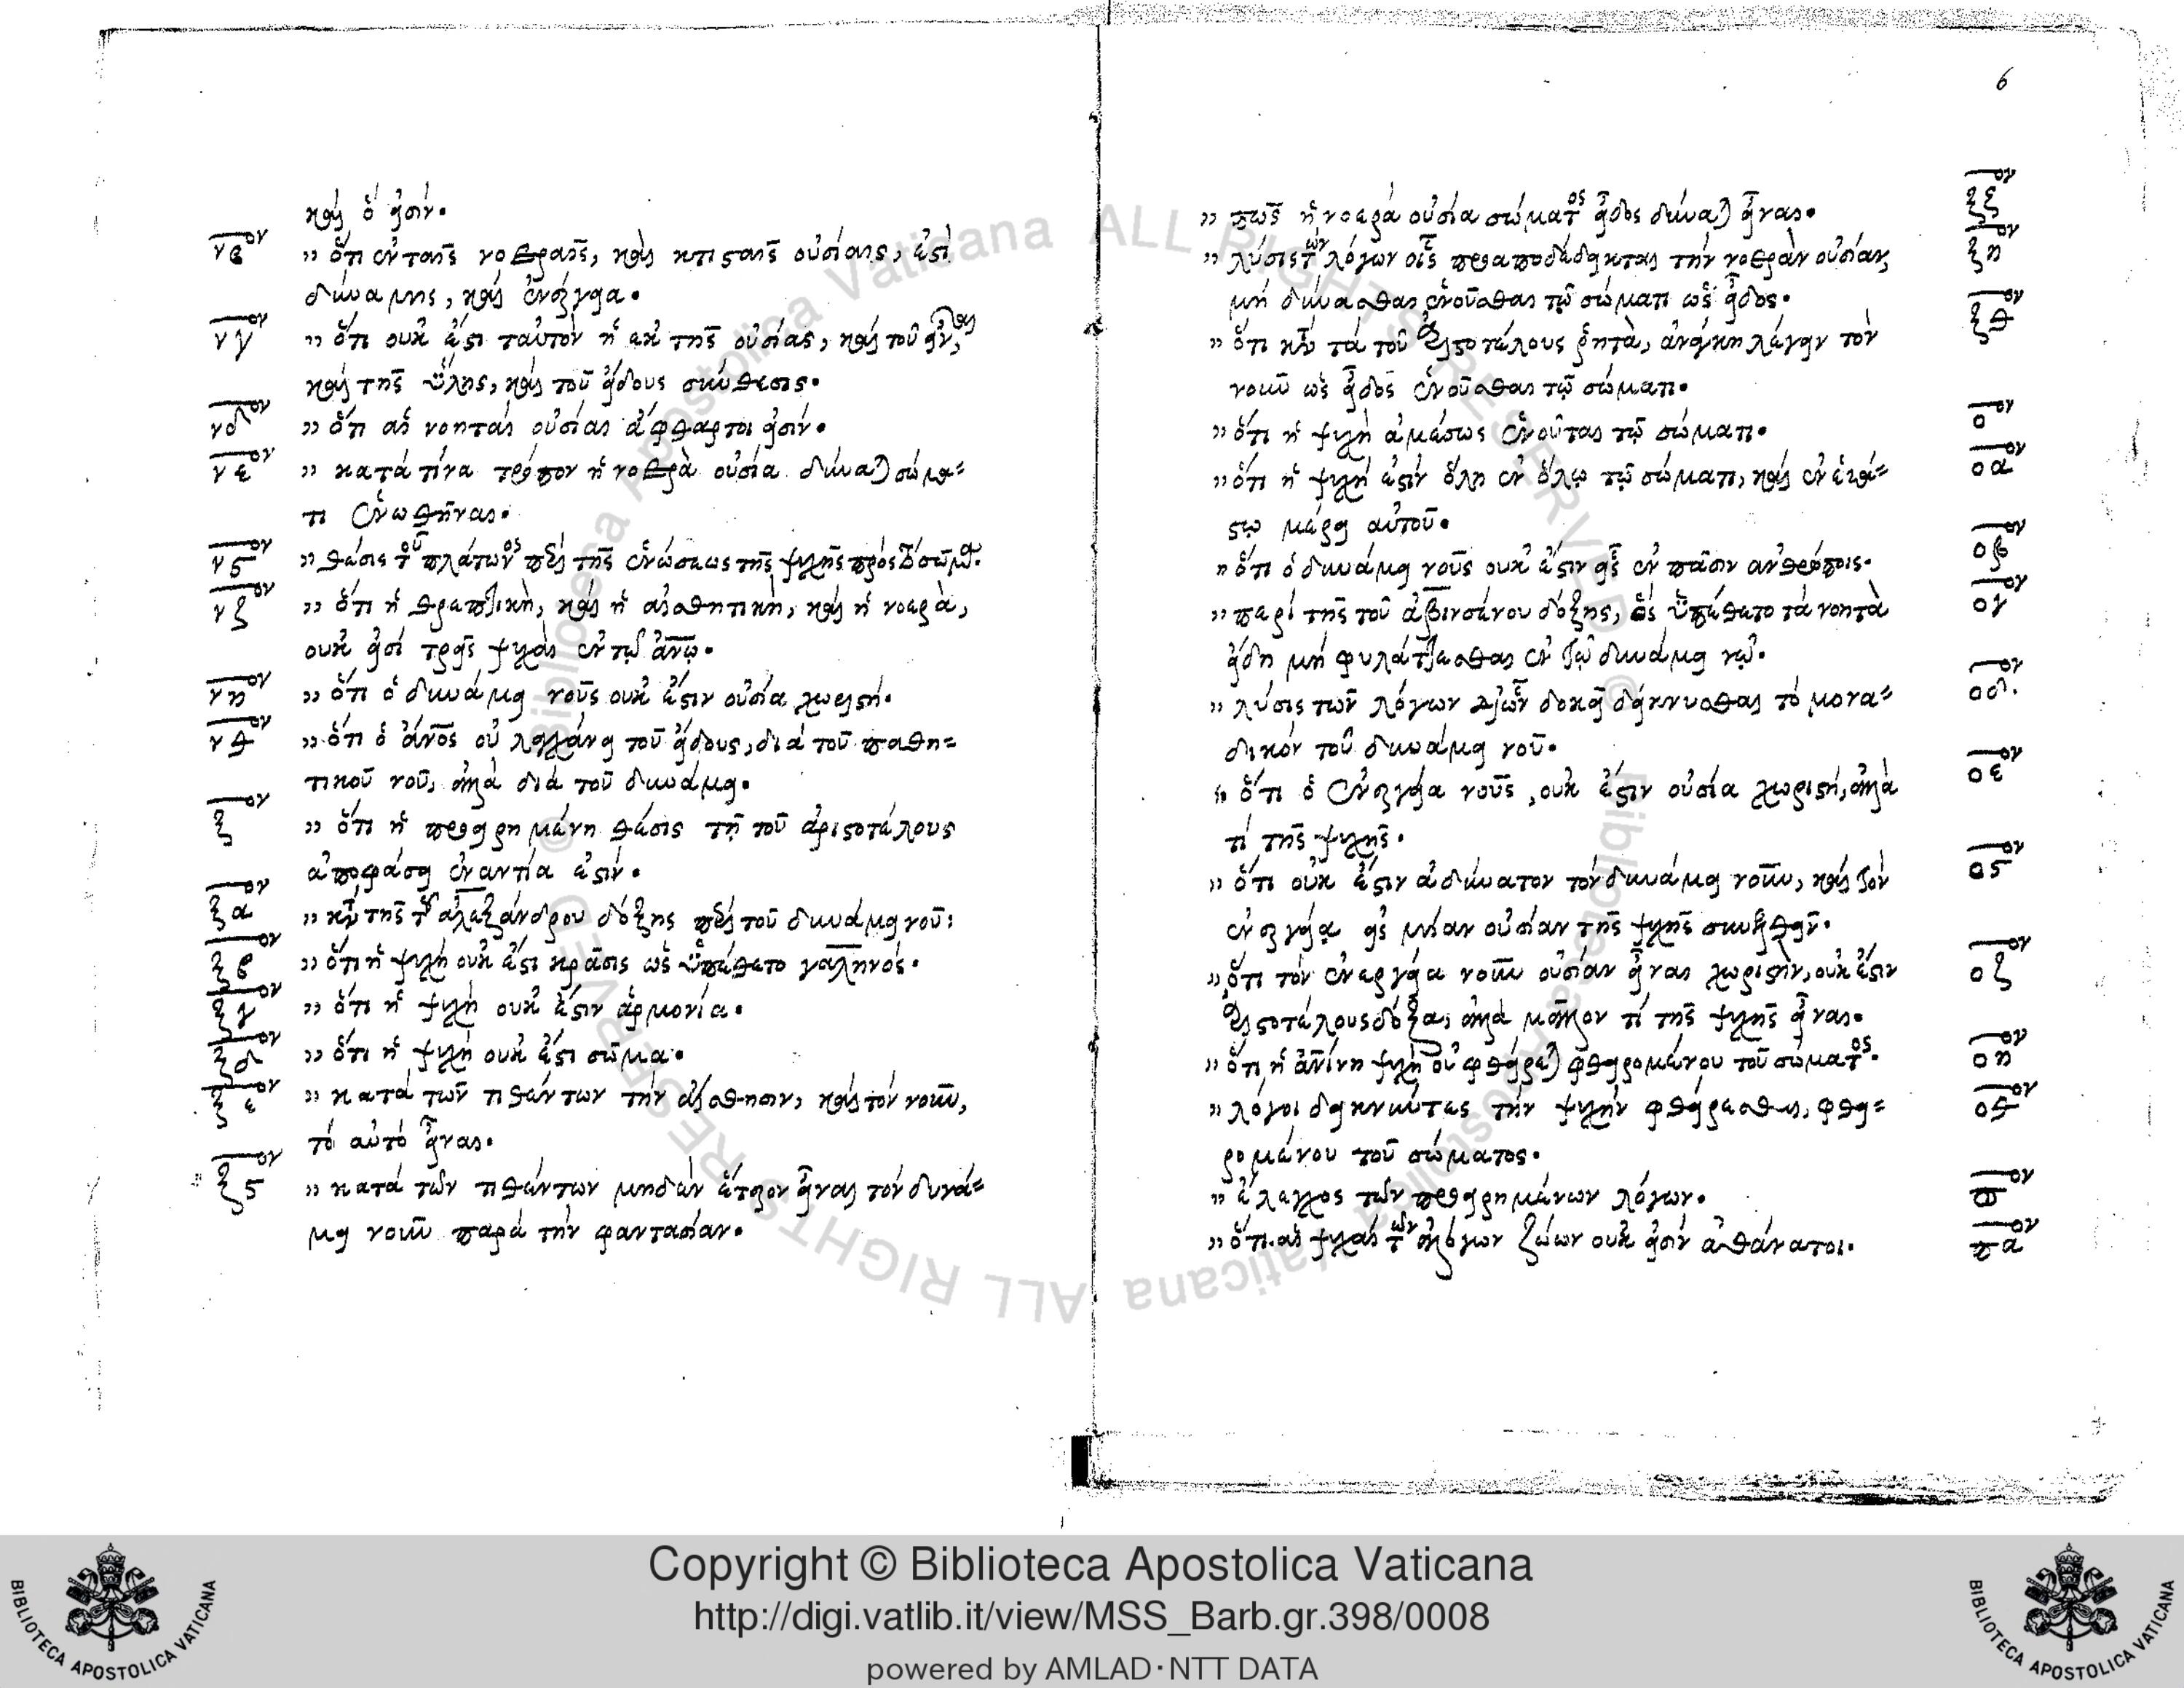 καὶ ὅ εἰσιν.
νβον " ὅτι ἐν ταῖς νοεραῖς, καὶ κτισταῖς οὐσίαις, ἐστὶ
δύναμις, καὶ ἐνέργεια.
νγον " ὅτι οὐκ ἔστι ταὐτὸν ἡ ἐκ τῆς οὐσίας, καὶ τοῦ εἶναι,
καὶ τῆς ὕλης, καὶ τοῦ εἴδους σύνθεσις.
νδον " ὅτι αἱ νοηταὶ οὐσίαι ἄφθαρτοι εἰσίν.
νεον " κατὰ τίνα τρόπον ἡ νοερὰ οὐσία δύναται σώμα=
τι ἑνωθῆναι.
νςον " θέσις τοῦ πλάτωνος περὶ τῆς ἑνώσεως τῆς ψυχῆς πρὸς τὸ σῶμα.
νζον " ὅτι ἡ θρεπτικὴ, καὶ ἡ αἰσθητικὴ, καὶ ἡ νοερὰ,
οὐκ εἰσὶ τρεῖς ψυχαὶ ἐν τῷ ἀνῳ.
νηον " ὅτι ὁ δυνάμει νοῦς οὐκ ἔστιν οὐσία χωριστή.
νθον " ὅτι ὁ ἄνος οὐ λαγχάνει τοῦ εἴδους, διὰ τοῦ παθη=
τικοῦ νοῦ, ἀλλὰ διὰ τοῦ δυνάμει.
ξον " ὅτι ἡ προειρημένη θέσις τῇ τοῦ ἀριστοτέλους
ἀποφάσει ἐναντία ἐστίν.
ξαον " κατὰ τῆς τοῦ ἀλεξάνδρου δόξης περὶ τοῦ δυνάμει νοῦ:
ξβον " ὅτι ἡ ψυχὴ οὐκ ἔστι κρᾶσις ὡς ὑπέθετο γαληνός.
ξγον " ὅτι ἡ ψυχὴ οὐκ ἔστιν ἁρμονία.
ξδον " ὅτι ἡ ψυχὴ οὐκ ἔστι σῶμα.
ξεον " κατὰ τῶν τιθέντων τὴν αἴσθησιν, καὶ τὸν νοῦν,
τὸ αὐτὸ εἶναι.
ξςον " κατὰ τῶν τιθέντων μηδὲν ἕτερον εἶναι τὸν δυνά=
μει νοῦν παρὰ τὴν φαντασίαν.
6
" πῶς ἡ νοερὰ οὐσία σώματος εἶδος δύναται εἶναι. ξζον
" λύσις τῶν λόγων οἷς προαποδέδεικται τὴν νοερὰν οὐσίαν, ξηον
μὴ δύνασθαι ἑνοῦσθαι τῷ σώματι ὡς εἶδος.
" ὅτι κατὰ τὰ τοῦ Ἀριστοτέλους ῥητὰ, ἀνάγκη λέγειν τὸν ξθον
νοῦν ὡς εἶδος ἑνοῦσθαι τῷ σώματι.
" ὅτι ἡ ψυχὴ ἀμέσως ἑνοῦται τῷ σώματι. οον
" ὅτι ἡ ψυχὴ ἐστὶν ὅλη ἐν ὅλῳ τῷ σώματι, καὶ ἐν ἑκά= οαον
στῳ μέρει αὐτοῦ.
" ὅτι ὁ δυνάμει νοῦς οὐκ ἔστιν εἷς ἐν πᾶσιν ἀνθρώποις. οβον
" περὶ τῆς τοῦ ἀβινσένου δόξης, ὃς ὑπέθετο τὰ νοητὰ ογον
εἴδη μὴ φυλάττεσθαι ἐν τῷ δυνάμει νῷ.
" λύσις τῶν λόγων δι' ὧν δοκεῖ δείκνυσθαι τὸ μονα= οδον
δικὸν τοῦ δυνάμει νοῦ.
" ὅτι ὁ ἐνεργείᾳ νοῦς, οὐκ ἔστιν οὐσία χωριστή, ἀλλὰ οεον
τὶ τῆς ψυχῆς.
" ὅτι οὐκ ἔστιν ἀδύνατον τὸν δυνάμει νοῦν, καὶ τὸν οςον
ἐνεργείᾳ εἰς μίαν οὐσίαν τῆς ψυχῆς συνελθεῖν.
" ὅτι τὸν ἐνεργείᾳ νοῦν οὐσίαν εἶναι χωριστὴν, οὐκ ἔστιν οζον
Ἀριστοτέλους δόξα, ἀλλὰ μᾶλλον τὶ τῆς ψυχῆς εἶναι.
" ὅτι ἡ ἀνίνη ψυχὴ οὐ φθείρεται φθειρομένου τοῦ σώματος. οηον
" λόγοι δεικνύντες τὴν ψυχὴν φθείρεσθαι, φθει= οθον
ρομένου τοῦ σώματος.
" ἔλεγχος τῶν προειρημένων λόγων. πον
" ὅτι αἱ ψυχαὶ τῶν ἀλόγων ζώων οὐκ εἰσὶν ἀθάνατοι. παον
Copyright © Biblioteca Apostolica Vaticana
http://digi.vatlib.it/view/MSS_Barb.gr.398/0008
powered by AMLAD·NTT DATA
BIBLIOTECA APOSTOLICA VATICANA
BIBLIOTECA APOSTOLICA VATICANA
Biblioteca Apostolica Vaticana ALL RIGHTS RESERVED ©
Biblioteca Apostolica Vaticana ALL RIGHTS RESERVED ©